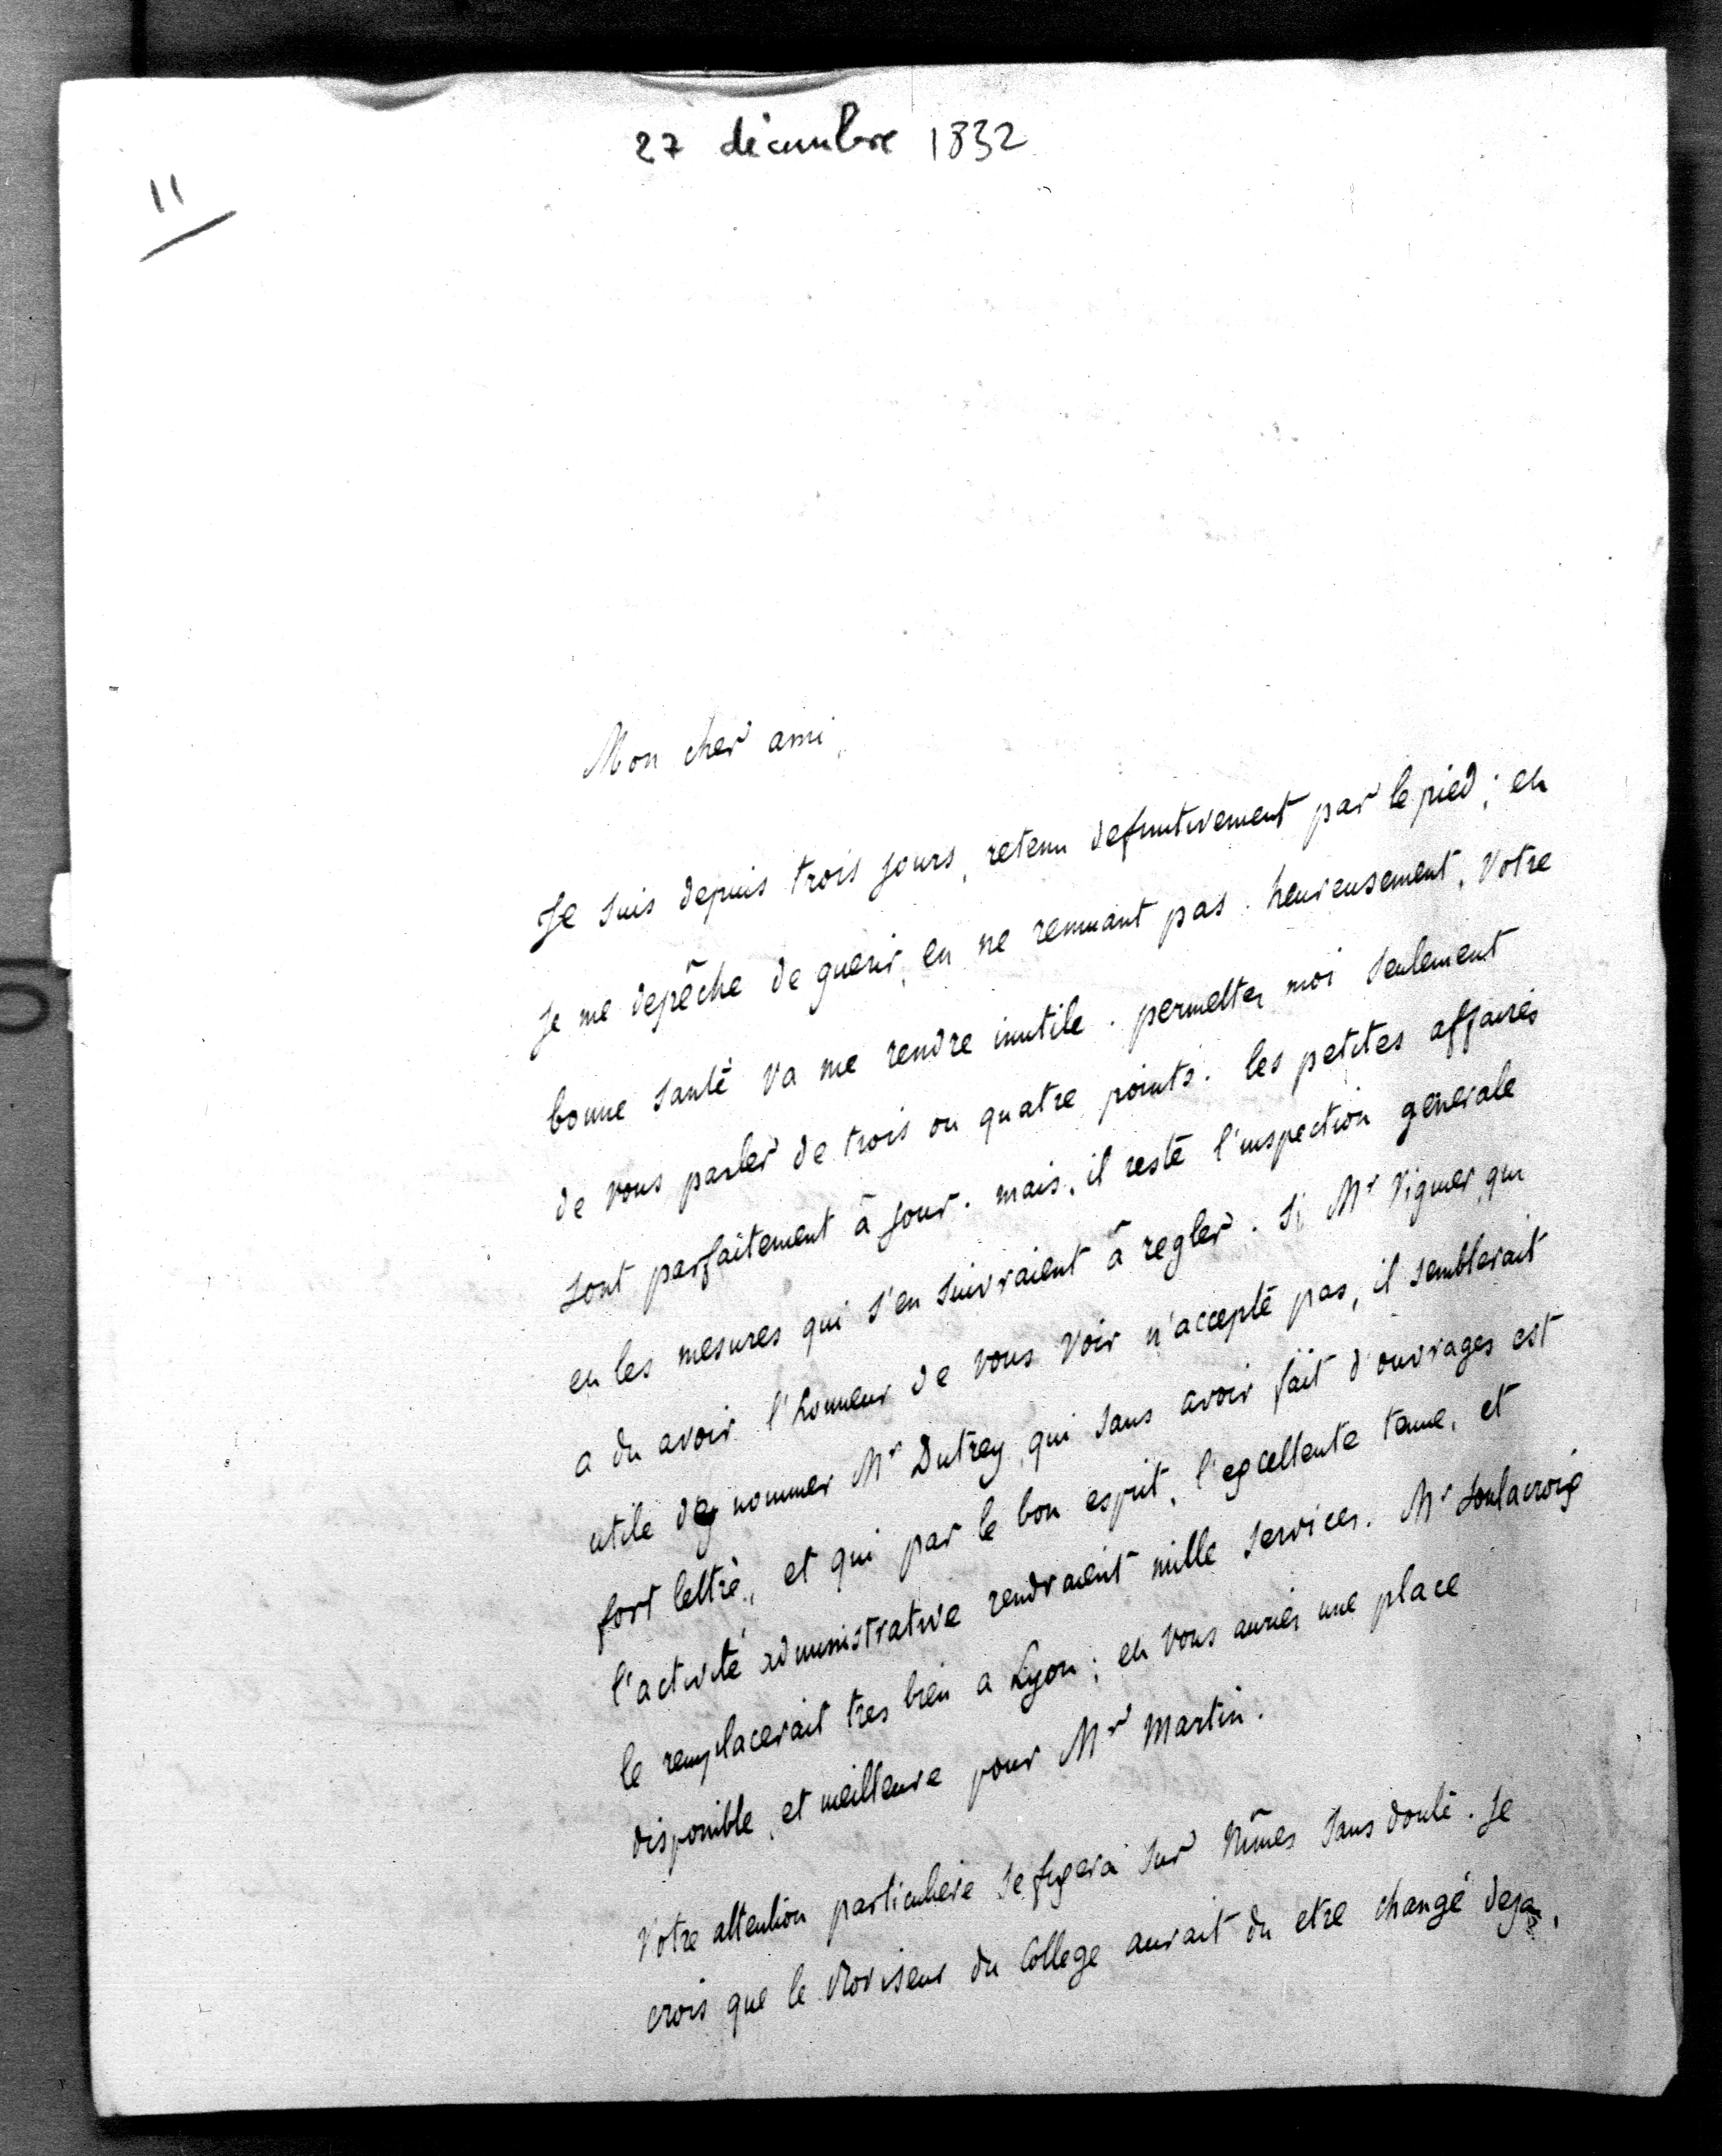 27 décembre 1832
11
Mon cher ami,
Je suis depuis trois jours, retenu definitivement par le pied; et
je me depêche de guerir, en ne remuant pas. heureusement, Votre
bonne santé va me rendre inutile. permettez moi seulement
de vous parler de trois ou quatre points. les petites affaires
sont parfaitement à jour. mais, il reste l'inspection générale
et les mesures qui s'en suivraient à regler. Si Mr Viguier, qui
a du avoir l'honneur de vous voir n'accepte pas, il semblerait
utile de nommer Mr Dutrey, qui sans avoir fait d'ouvrages est
fort lettré, et qui par le bon esprit, l'excellente tenue, et
l'activité administrative rendraient mille services. Mr Soulacroix
le remplacerait tres bien a Lyon; et vous auriez une place
disponible, et meilleure pour Mr Martin.
Votre attention particuliere se fixera sur Nîmes sans doute. Je
crois que le Proviseur du College aurait du etre changé deja,